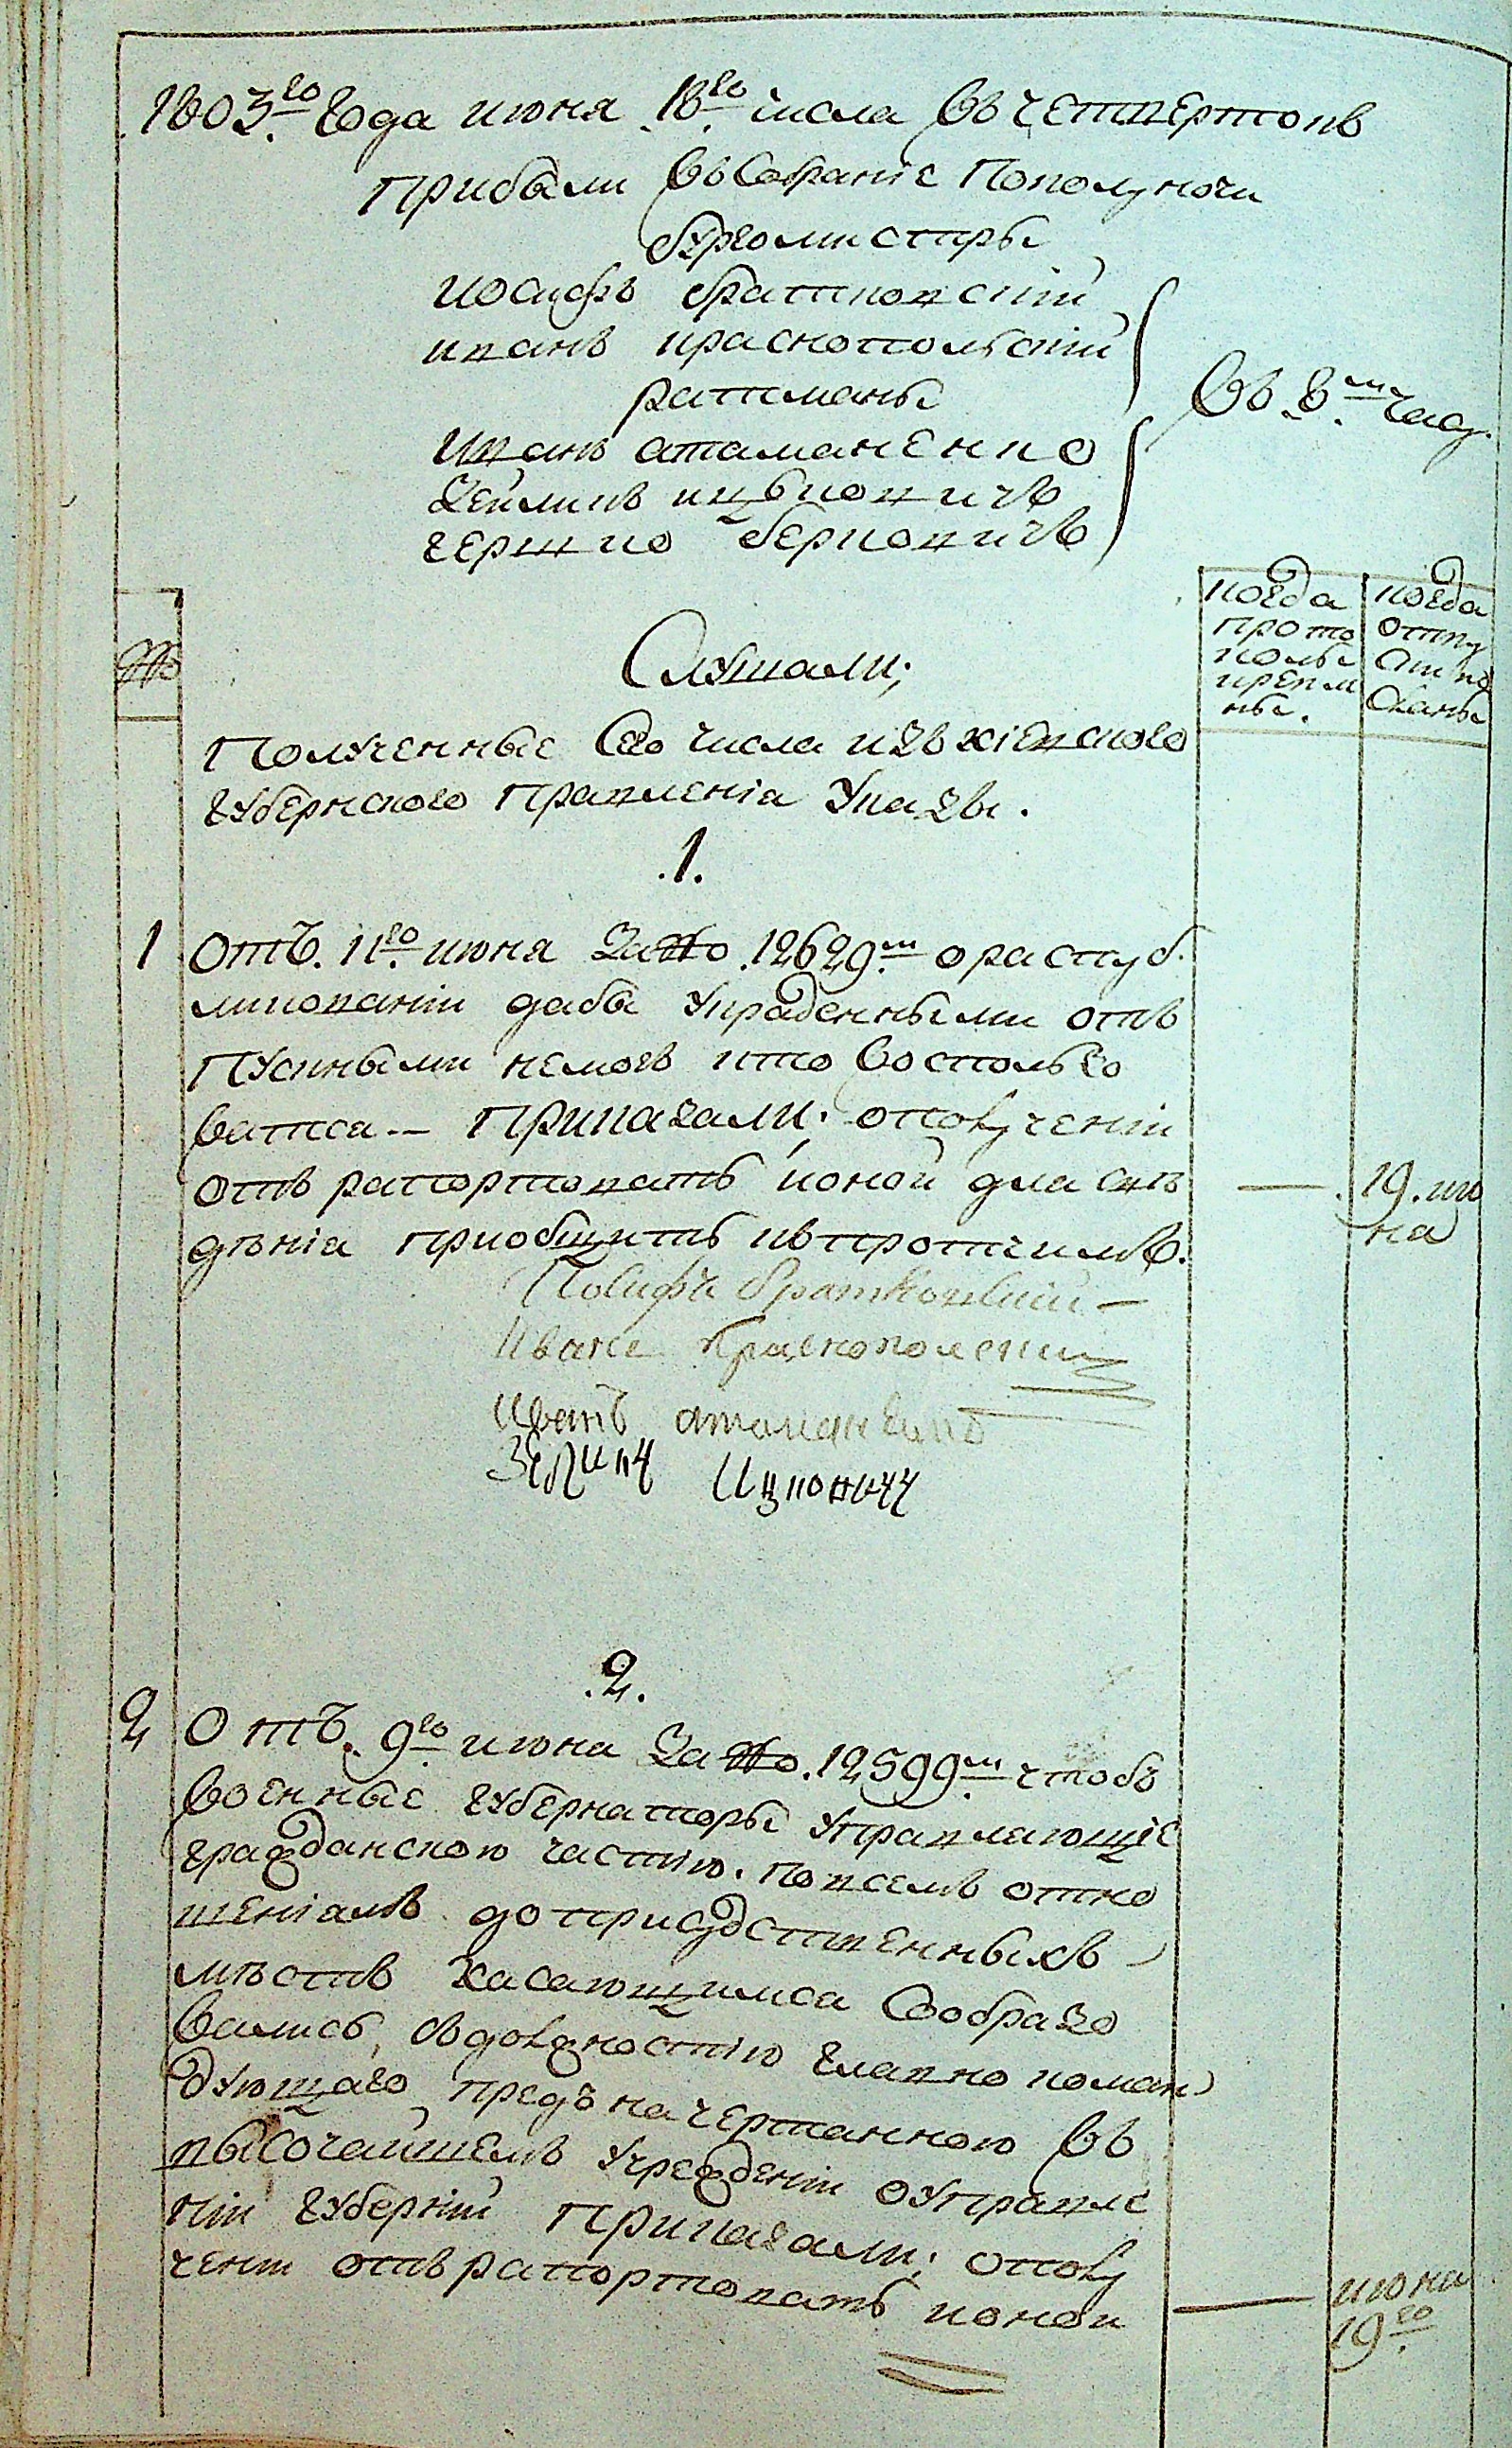 1803го года июня 18го числа въ четвертокъ
прибыли въ собрание пополуночи
бургомистры
иосифъ братковский
иванъ краснопольский
ратманы
иванъ атаманенко
зеиликъ ицковичъ
гершко берковичъ
въ 8м часу.
№
когда прото колы кревлены.
когда отпу ски по сланы
Слушали;
Полученные сего числа изъ киевского
губернского правления указы.
.1.
1 Отъ. 11го июня за № 12629м о распуб.
ликовании дабы украденными отъ
пускными немогъ кто воспользо
ватся — приказали; ополучении
отъ рапортовать ионой для свѣ
дѣния приобщить къ протчимъ.
— 19. ию
ня
Иосифъ Братковский —
Иванъ Краснополский
Иванъ атаманенко
Зеликъ Ицковичъ
.2.
2 Отъ. 9го июня за № 12599м чтобъ
военные губернаторы управляющие
гражданскою частию. по всемъ отно
шениямъ до присудственныхъ
мѣстъ касающимся сообразо
вались, съ должностию главно коман
дующаго предъ начертанною въ
высочайшемъ учреждении о управле
нии губерний приказали; ополу
чении отъ рапортовать ионои
— июня
19го